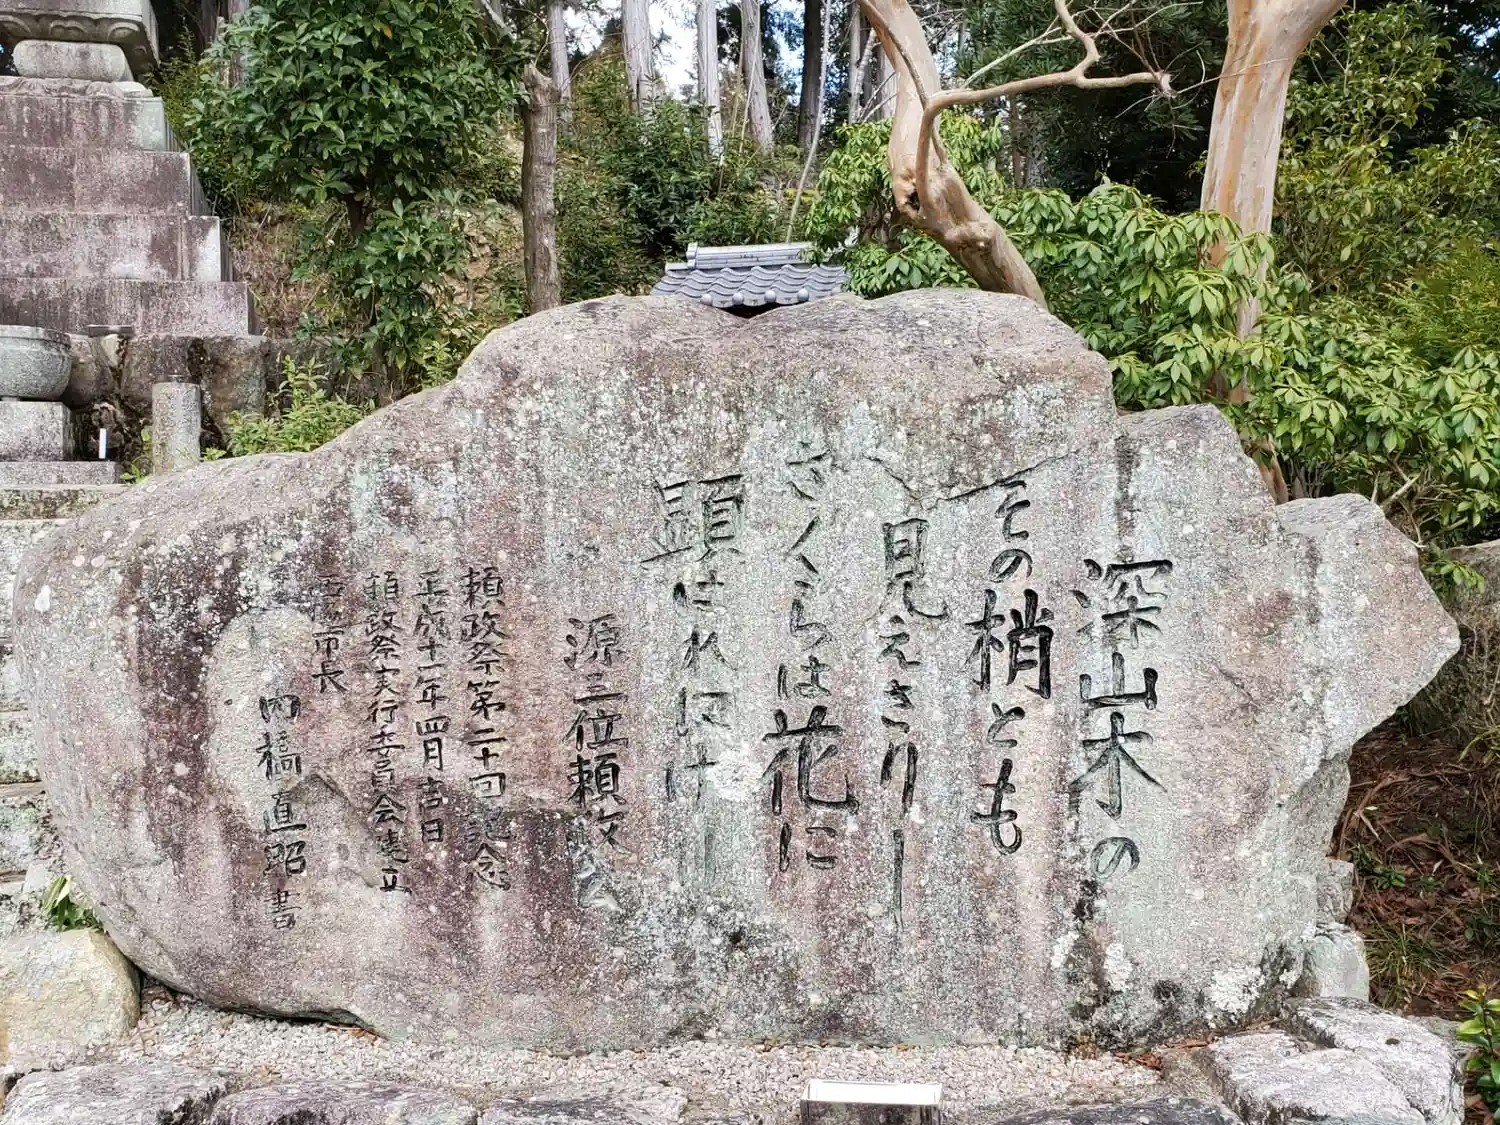 深山木の
その梢とも
見えさりし
さくらは花に
顕はれにけ
源三位頼政公
頼政祭第二十回記念
平成十一年四月吉日
頼政祭実行委員会建立
市長
内橋直昭書